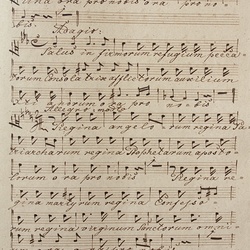 ora pro nobis ora pro no-
bis.
Adagio:
Salus infirmorum refugium pecca-
torum consolatrix afflictorum auxilium
orum ora pro nobis
Allegro
Regina angelo- rum regina Pa-
triarcharum regina Prophetarum aposto-
lorum ora pro nobis Regina re-
gina martyrum regina Confesso-
rum regina virginum Sanctorum omni-